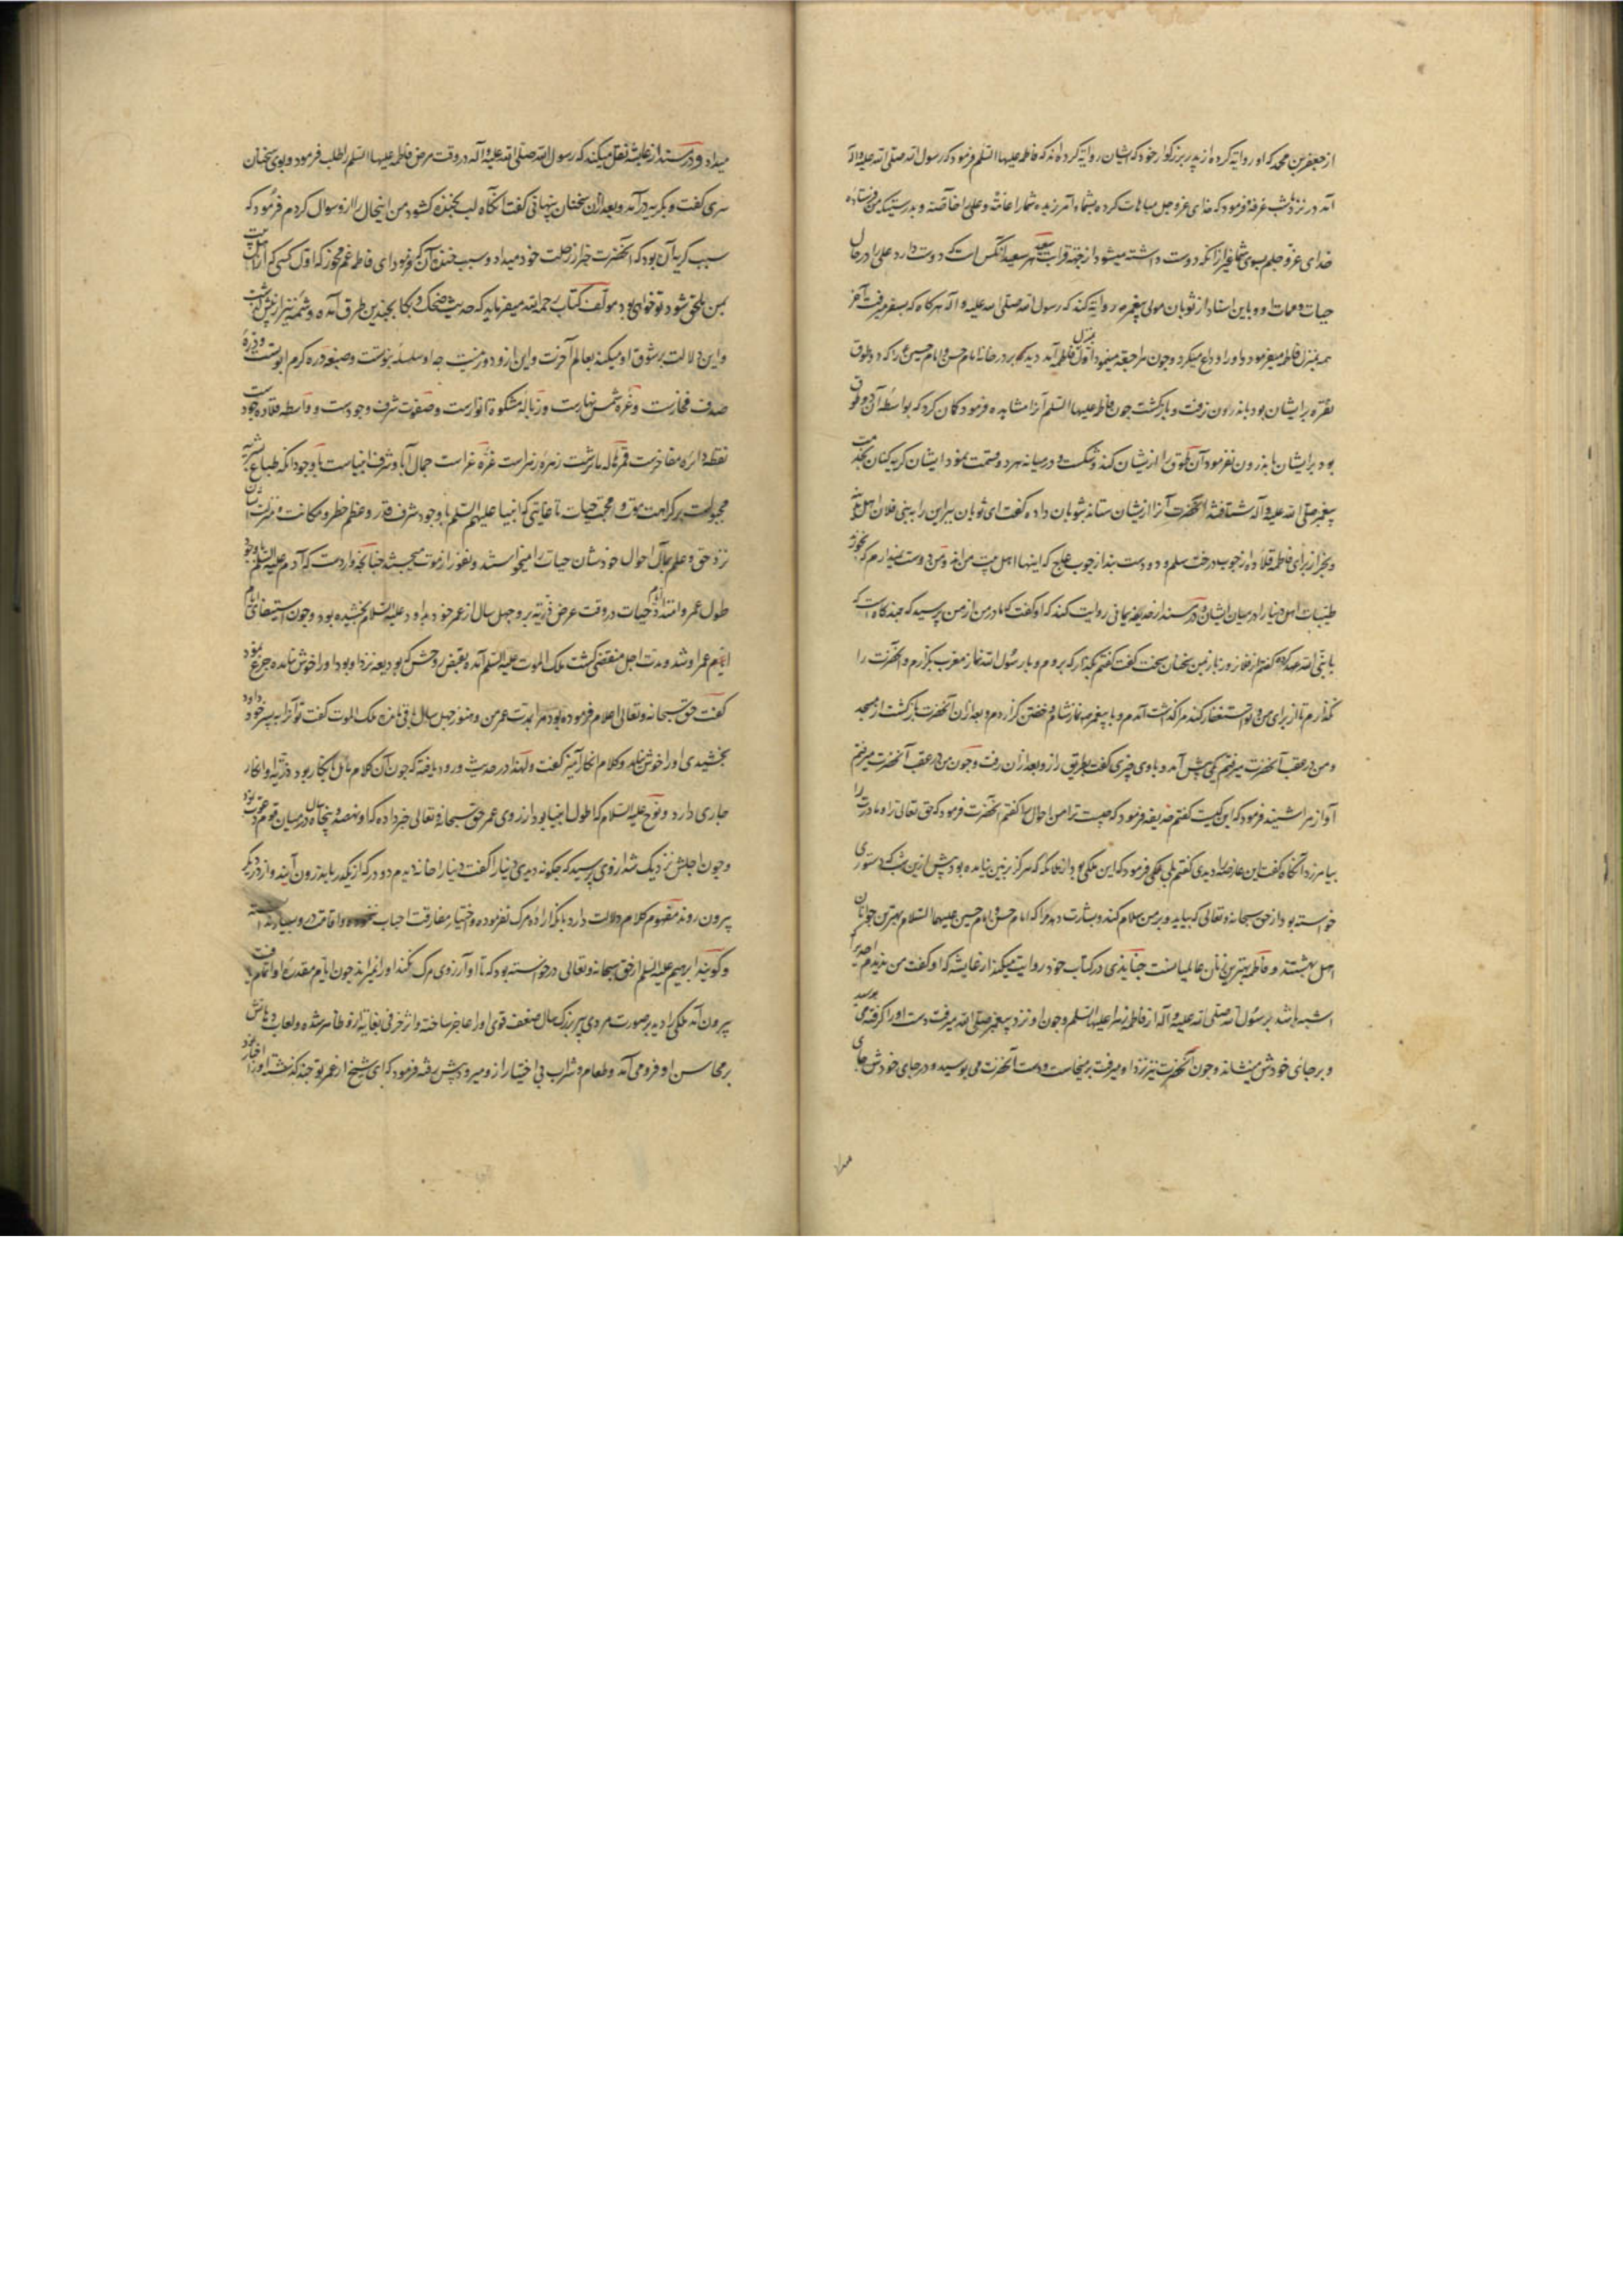 از جعفر بن محمد که او روایة کرده از پدر بزرگوار خود که ایشان روایة کرده‌اند که فاطمه علیها السلم فرمود که رسول الله صلی الله علیه و اله
آمد در نزد ما شب عرفه فرمود که خدای عز و جل مباهات کرده بشما و آمرزیده شما را عامة و علی را خاصة و بدرستیکه من فرستاده
خدای عز و جلم بسوی شما غیر از آنکه دوست داشته میشود از جهة قرابت سعید هر سعید آنکس است که دوست دارد علی را در حال
حیات و ممات او و باین اسناد از ثوبان مولی پیغمبر روایة کند که رسول الله صلی الله علیه و اله هرکاه که بسفر میرفت آخر
همه بمنزل فاطمه میفرمود و او را وداع میکرد و چون مراجعة مینمود اول بمنزل فاطمه آمد دید که بر در خانه امام حسن و امام حسین ع را که دو طوق
نقره بر ایشان بود باندرون نرفت و بازکشت چون فاطمه علیها السلم آنرا مشاهده فرمود کمان کرد که بواسطه آن دو طوق
بود بر ایشان باندرون نفرمود آن طوق را از ایشان کند و شکست و در میانه هر دو قسمت نمود ایشان کریه کنان بخدمت
پیغمبر صلی الله علیه و آله شتافتند آنحضرت آنرا از ایشان ستاند بثوبان داد و کفت ای ثوبان ببر این را به بنی فلان اهل
و بخر از برای فاطمه قلاده از چوب درخت سلم و دو دست بند از چوب عاج که اینها اهل بیت من‌اند و من دوست نمیدارم که بخورند
طیبات اهل دنیا را در میان ایشان و در سند از حذیفه یمانی روایت کنند که او کفت که مادر من از من پرسید که چند کاه است که
یا بنی الله عهد کرده کفتم از فلان روز باز بمن سخنان سخت کفت کفتم بکذار که بروم و با رسول الله نماز مغرب بکزارم و آنحضرت را
نکذارم تا از برای من و تو استغفار کند مرا کذاشت آمدم و با پیغمبر ص نماز شام و خفتن کزاردم و بعد از آن آنحضرت بازکشت از مسجد
و من در عقب آنحضرت میرفتم یکی پیش آمد و با وی چیزی کفت بطریق راز و بعد از آن رفت و چون من در عقب آنحضرت میرفتم
آواز مرا شنید فرمود که این کیست کفتم حذیفه فرمود که چیست ترا من احوال را کفتم آنحضرت فرمود که حق تعالی ترا و مادرت را
بیامرزد آنکاه کفت این عارض را دیدی کفتم بلی یکی فرمود که این ملکی بود از ملائکه که هرکز بزمین نیامده بود پیش ازین شب که دستوری
خواسته بود از حق سبحانه و تعالی که بیاید و بر من سلام کند و بشارت دهد مرا که امام حسن و امام حسین علیهما السلام بهترین جوانان
اهل بهشتند و فاطمه بهترین زنان عالمیان است جنابذی در کتاب خود روایت میکند از عایشه که او کفت من ندیدم احدی را
اشبه باشد برسول الله صلی الله علیه و آله از فاطمه زهرا علیها السلم و چون او نزد پیغمبر صلی الله میرفت دست او را کرفته می بوسید
و بر جای خودش مینشاند و چون آنحضرت نیز نزد او میرفت برمیخاست و دست آنحضرت می بوسید و در جای خودش جای
میداد
میداد و در سند از عایشه نقل میکند که رسول الله صلی الله علیه و آله در وقت مرض فاطمه علیها السلم را طلب فرمود و بوی سخنان
سری کفت و بکریه درآمد و بعد از آن سخنان پنهانی کفت تا آنکاه لب بخنده کشود من اینحال را ازو سوال کردم فرمود که
سبب کریه آن بود که آنحضرت خبر از رحلت خود میداد و سبب خنده آن که فرمود ای فاطمه غم مخور که اول کسی که از اهل بیت
بمن ملحق شود تو خواهی بود مولف کتاب رحمه الله میفرماید که حدیث ضحک و بکا بچندین طرق آمده و شمه نیز ازین پیش کذشت
و این دلالت بر شوق او میکند بعالم آخرت و این ازو دور نیست چه او سلسله نبوتست و صنیعه دره کرم ابوتست و دره
صدف فخارست و غره شمس نهارست و زباله مشکوة انوارست و صفوت شرف وجودست و واسطه قلاده جود
نقطه دائره مفاخرست قمر هاله مآثرست زهره زهراست غره غراست جمال آبا و شرف انبیاست با وجود آنکه طباع بشریه
مجبولست بر کراهت موت و محبت حیات تا غایتی که انبیا علیهم السلم با وجود شرف قدر و عظم خطر و مکانت و منزلت ایشان
نزد حق و علم بمآل احوال خودشان حیات را میخواستند و نفور از موت میجستند چنانچه واردست که آدم علیه السلم با وجود
طول عمر و امتداد ایام حیات در وقت عرض ذریه برو چهل سال از عمر خود بداود علیه السلام بخشیده بود و چون استیفای ایام
ایام عمر او شد و مدت اجل منقضی کشت ملک الموت علیه السلم آمد و بقبض روحش که ودیعه نزد او بود او را خوش نیامده جزع نمود
کفت حق سبحانه و تعالی اعلام فرموده بود مرا بمدت عمر من و هنوز چهل سال باقی مانده ملک الموت کفت تو آنرا به پسر خود داود
بخشیدی او را خوش نیامد و کلام انکار آمیز کفت ولهذا در حدیث ورود یافته که چون آن کلام مائل بانکار بود ذریة او انکار
جاری دارد و نوح علیه السلام که اطول انبیا بود از روی عمر حق سبحانه و تعالی خبر داده که او نهصد و پنجاه سال در میان قوم دعوت نمود
و چون اجلش نزدیک شد از وی پرسید که چکونه دیدی دنیا را کفت دنیا را خانه دیدم دو در که از یکدر باندرون آیند و از در دیکر
بیرون روند مفهوم کلام دلالت دارد بانکه اراده مرک نفرموده و اختیار مفارقت احباب و اقامت درو
و کویند ابرهیم علیه السلم از حق سبحانه و تعالی درخواسته بود که تا او آرزوی مرک نکند او را نمیراند چون ایام مقدره او اتمام یافت
بیرون آمد ملکی را دید بر صورت مردی پیر بزرک سال ضعف قوی او را عاجز ساخته و اثر خرفی بغایة ازو ظاهر شده و لعاب دهانش
بر محاسن او فرو می آمد و طعام و شراب بی اختیار ازو میرود پیش رفته فرمود که ای شیخ از عمر تو چند کذشته او از